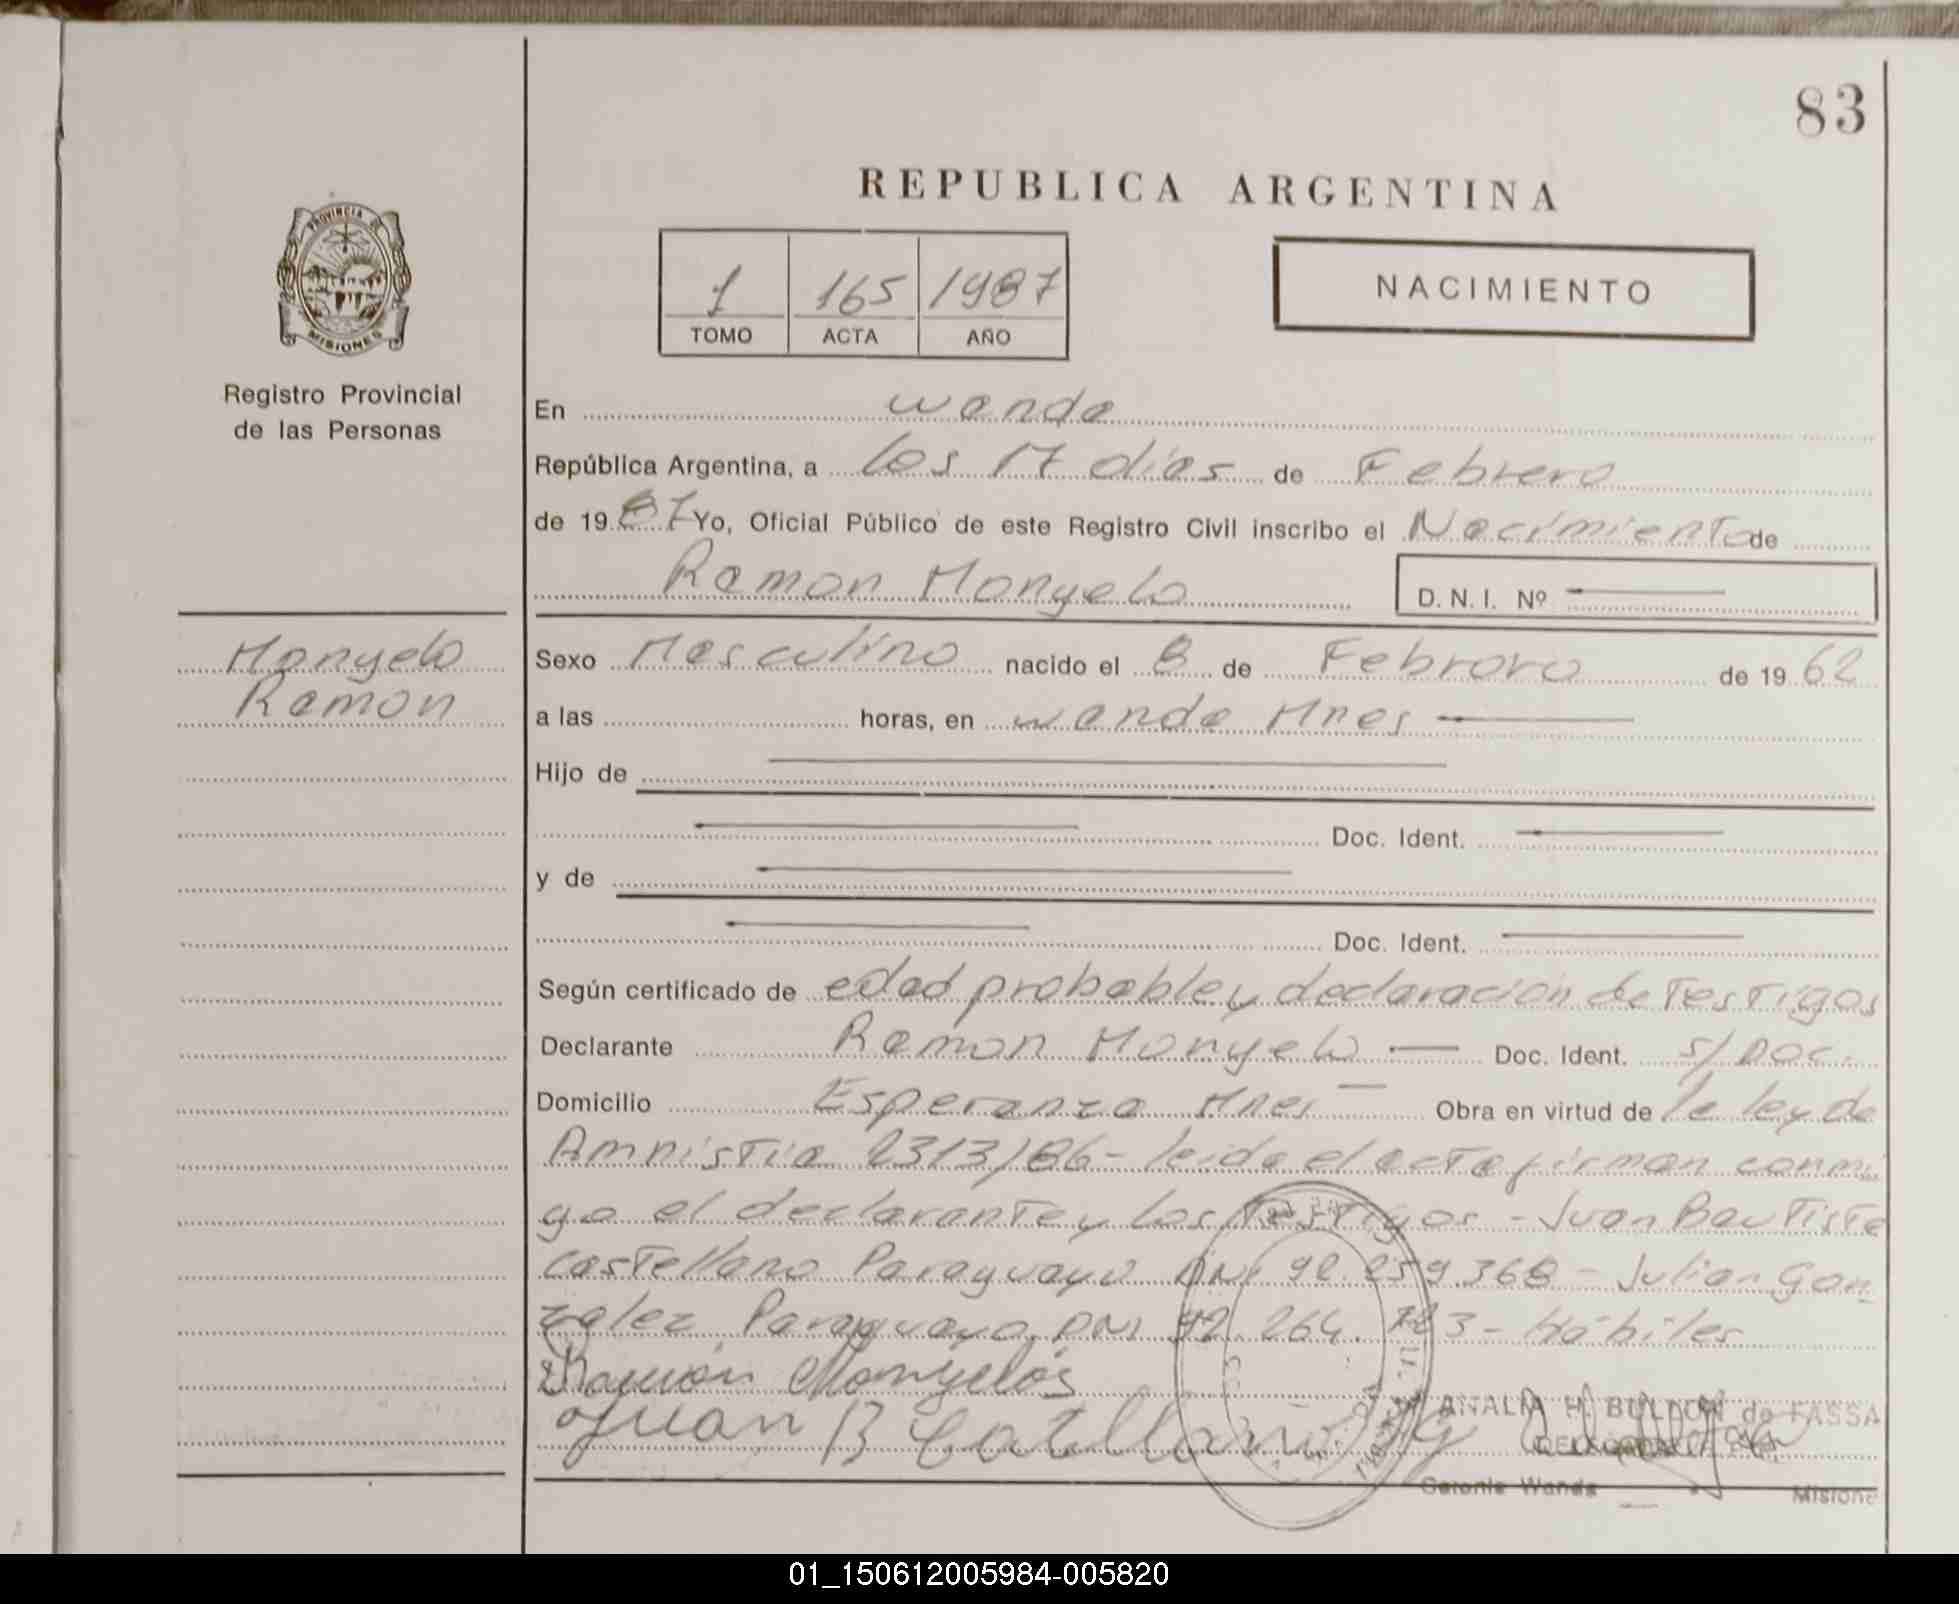 83
REPUBLICA ARGENTINA
PROVINCIA DE
MISIONES
Registro Provincial
de las Personas
1 165 1987
TOMO ACTA AÑO
NACIMIENTO
En Wanda
República Argentina, a los 17 días de Febrero
de 19 87 Yo, Oficial Público de este Registro Civil inscribo el Nacimiento de
Ramon Mongelo D. N. I. Nº
Mongelo
Ramon
Sexo Masculino nacido el 8 de Febrero de 19 62
a las horas, en Wanda Mnes
Hijo de
Doc. Ident.
y de
Doc. Ident.
Según certificado de edad probable y declaración de Testigos
Declarante Ramon Mongelo Doc. Ident. s/ Doc.
Domicilio Esperanza Mnes Obra en virtud de la ley de
Amnistia 2313/86 - leida el acta firman conmi
go el declarante y los Testigos - Juan Bautista
Castellano Paraguayo DNI 92.259.368 - Julian Gon
zalez Paraguayo DNI 92.264. - Hábiles
Ramón Mongelós
Juan B Catellano
ANALIA H. BULLON de FASSA
Colonia Wanda Misione
01_150612005984-005820